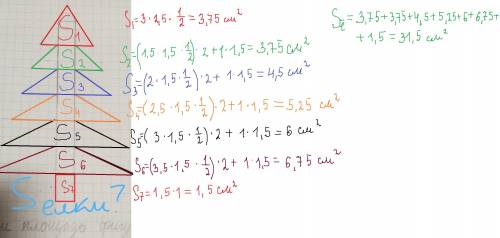 S₁
S₂
S₃
S₄
S₅
S₆
S₇
S елки?
площадь
S₁=3·2,5·½=3,75 см²
S₂=(1,5·1,5·½)·2+1·1,5=3,75 см²
S₃=(2·1,5·½)·2+1·1,5=4,5 см²
S₄=(2,5·1,5·½)·2+1·1,5=5,25 см²
S₅=(3·1,5·½)·2+1·1,5=6 см²
S₆=(3,5·1,5·½)·2+1·1,5=6,75 см²
S₇=1,5·1=1,5 см²
=3,75+3,75+4,5+5,25+6+6,75+
+1,5=31,5 см²